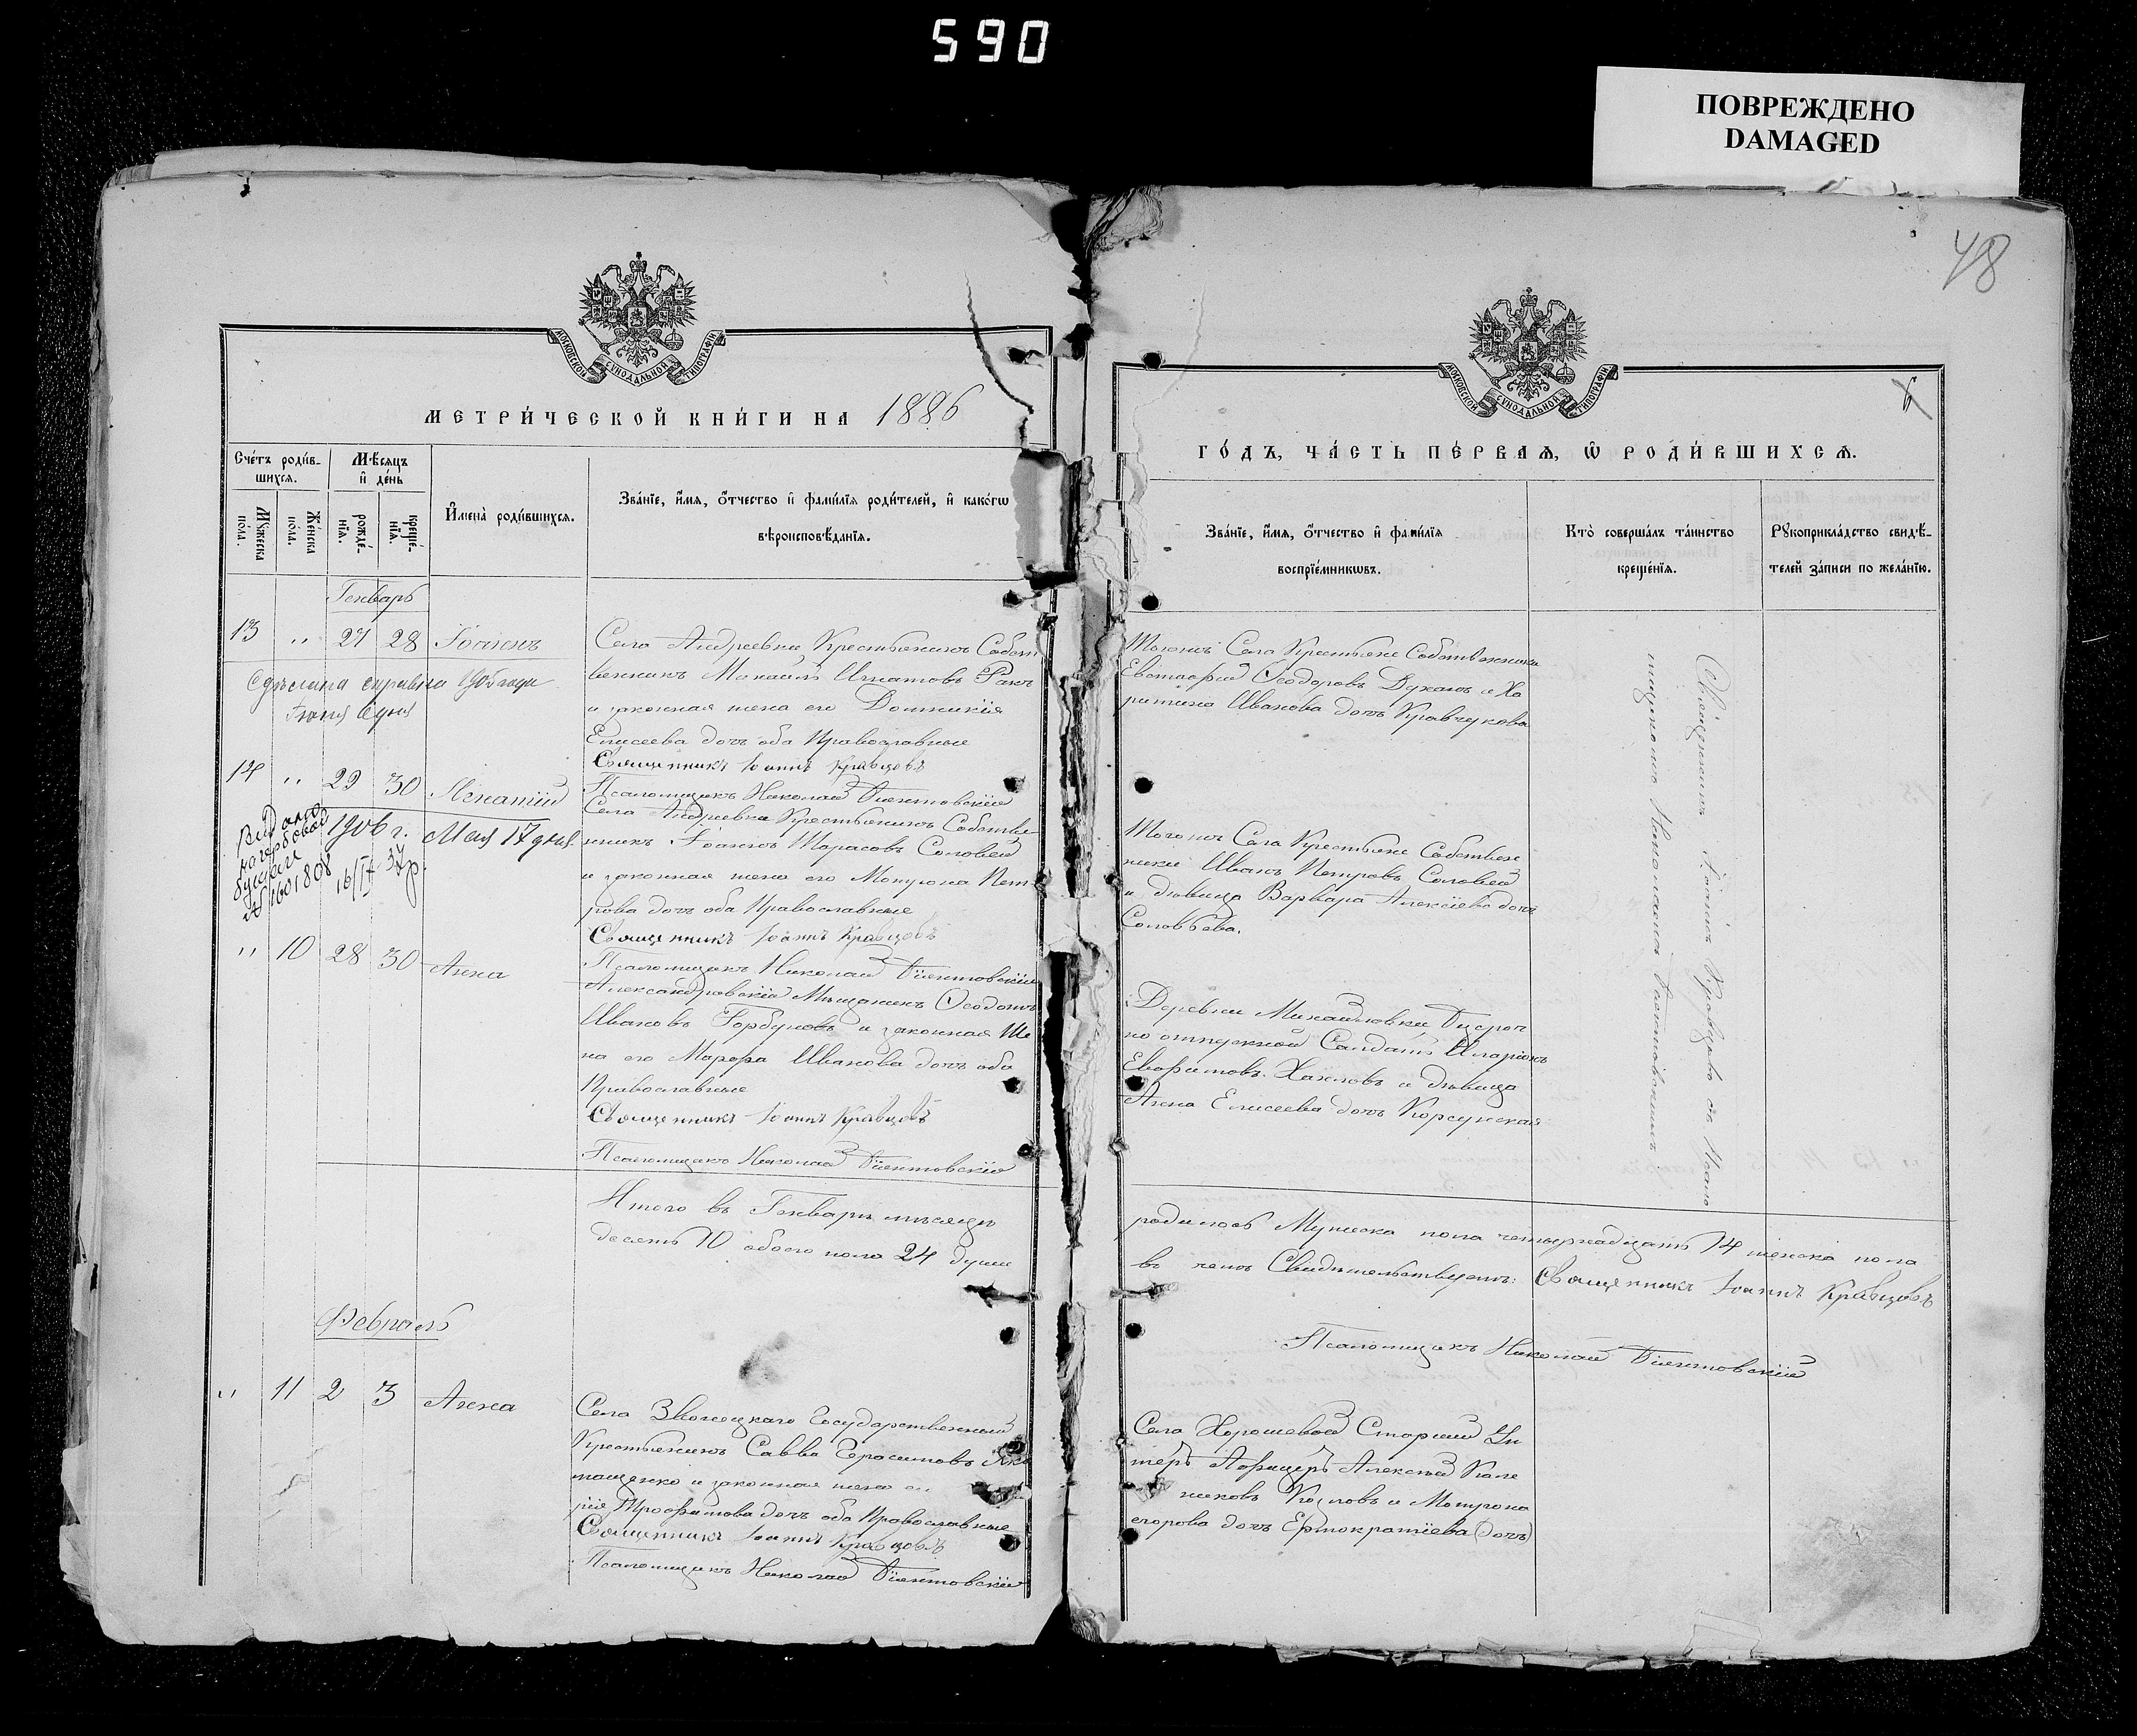 590
ПОВРЕЖДЕНО
DAMAGED
48
МОСКОВСКОЙ СУНОДАЛЬНОЙ ТИПОГРАФІИ
МЕТРИ́ЧЕСКОЙ КНИ́ГИ НА 1886
Сче́тъ роди́в-
шихсѧ.
Мѣ́сѧцъ
и҆ де́нь
Мꙋ́жеска
по́ла.
Же́нска
по́ла.
рожде́-
нїѧ.
креще́-
нїѧ.
И҆мена̀ роди́вшихсѧ.
Зва́нїе, и҆́мѧ, ѻ҆́тчество и҆ фами́лїѧ роди́телей, и҆ како́гѡ
вѣроисповѣ́данїѧ.
Генварь
13 " 27 28 Іоаннъ
Села Андреевки, Крестьянинъ Собст
венникъ Михаилъ Игнатовъ Ракъ
и законная жена его Домникія
Елисеева дочь оба Православные
Священникъ Іоаннъ Кравцовъ
Псаломщикъ Николай
Сдѣлана справка 1905 года
Іюня дня
14 " 29 30 Игнатій
Села Андреевки Крестьянинъ Собстве
нникъ Іоаннъ Тарасовъ Соловей
и законная жена его Мотрона Пет
рова дочь оба Православные
Священникъ Іоаннъ Кравцовъ
Псаломщикъ Николай
1906 г. Мая 17 дня.
№ 1601808
" 10 28 30 Анна
Александровскій Мѣщанинъ Ѳеодотъ
Ивановъ Горбуновъ и законная Же
на его Марфа Иванова дочь оба
Православные
Священникъ Іоаннъ Кравцовъ
Псаломщикъ Николай
Итого въ Генварѣ мѣсяцѣ
десять 10 обоего пола 24 души
Февраль
" 11 2 3 Анна
Села Звонецкаго Государственный
Крестьянинъ Савва Герасимовъ
и законная жена
Трофимова дочь оба Православные
Священникъ Іоаннъ Кравцовъ
Псаломщикъ Николай
МОСКОВСКОЙ СУНОДАЛЬНОЙ ТИПОГРАФІИ
6
ГО́ДЪ, ЧА́СТЬ ПЕ́РВАѦ, Ѡ҆ РОДИ́ВШИХСѦ.
Зва́нїе, и҆́мѧ, ѻ҆́тчество и҆ фами́лїѧ
воспрїе́мникѡвъ.
Кто̀ соверша́лъ та́инство
креще́нїѧ.
Рꙋкоприкла́дство свидѣ́-
телей за́писи по жела́нїю.
Тогожъ Села Крестьяне Собственники
Евстафій Ѳеодоровъ Духанъ и Ха
ритина Иванова дочь Кравчукова
Тогожъ Села Крестьяне Собствен
ники Иванъ Петровъ Соловей
и дѣвица Варвара Алексіева дочь
Соловьева.
Деревни Михайловки Безсроч
но отпускной Солдатъ Иларіонъ
Евфимовъ Хахловъ и дѣвица
Анна Елисеева дочь Корсунская
Священникъ Іоаннъ Кравцовъ съ Псало
мщикомъ Николаемъ
родилось Мужеска пола четырнадцать 14 женска пола
въ чемъ Свидѣтельствуемъ: Священникъ Іоаннъ Кравцовъ
Псаломщикъ Николай
Села Хорошевой Старшій Ун
теръ Афицеръ Алексѣй
Козловъ и Мотрона
егорова дочь